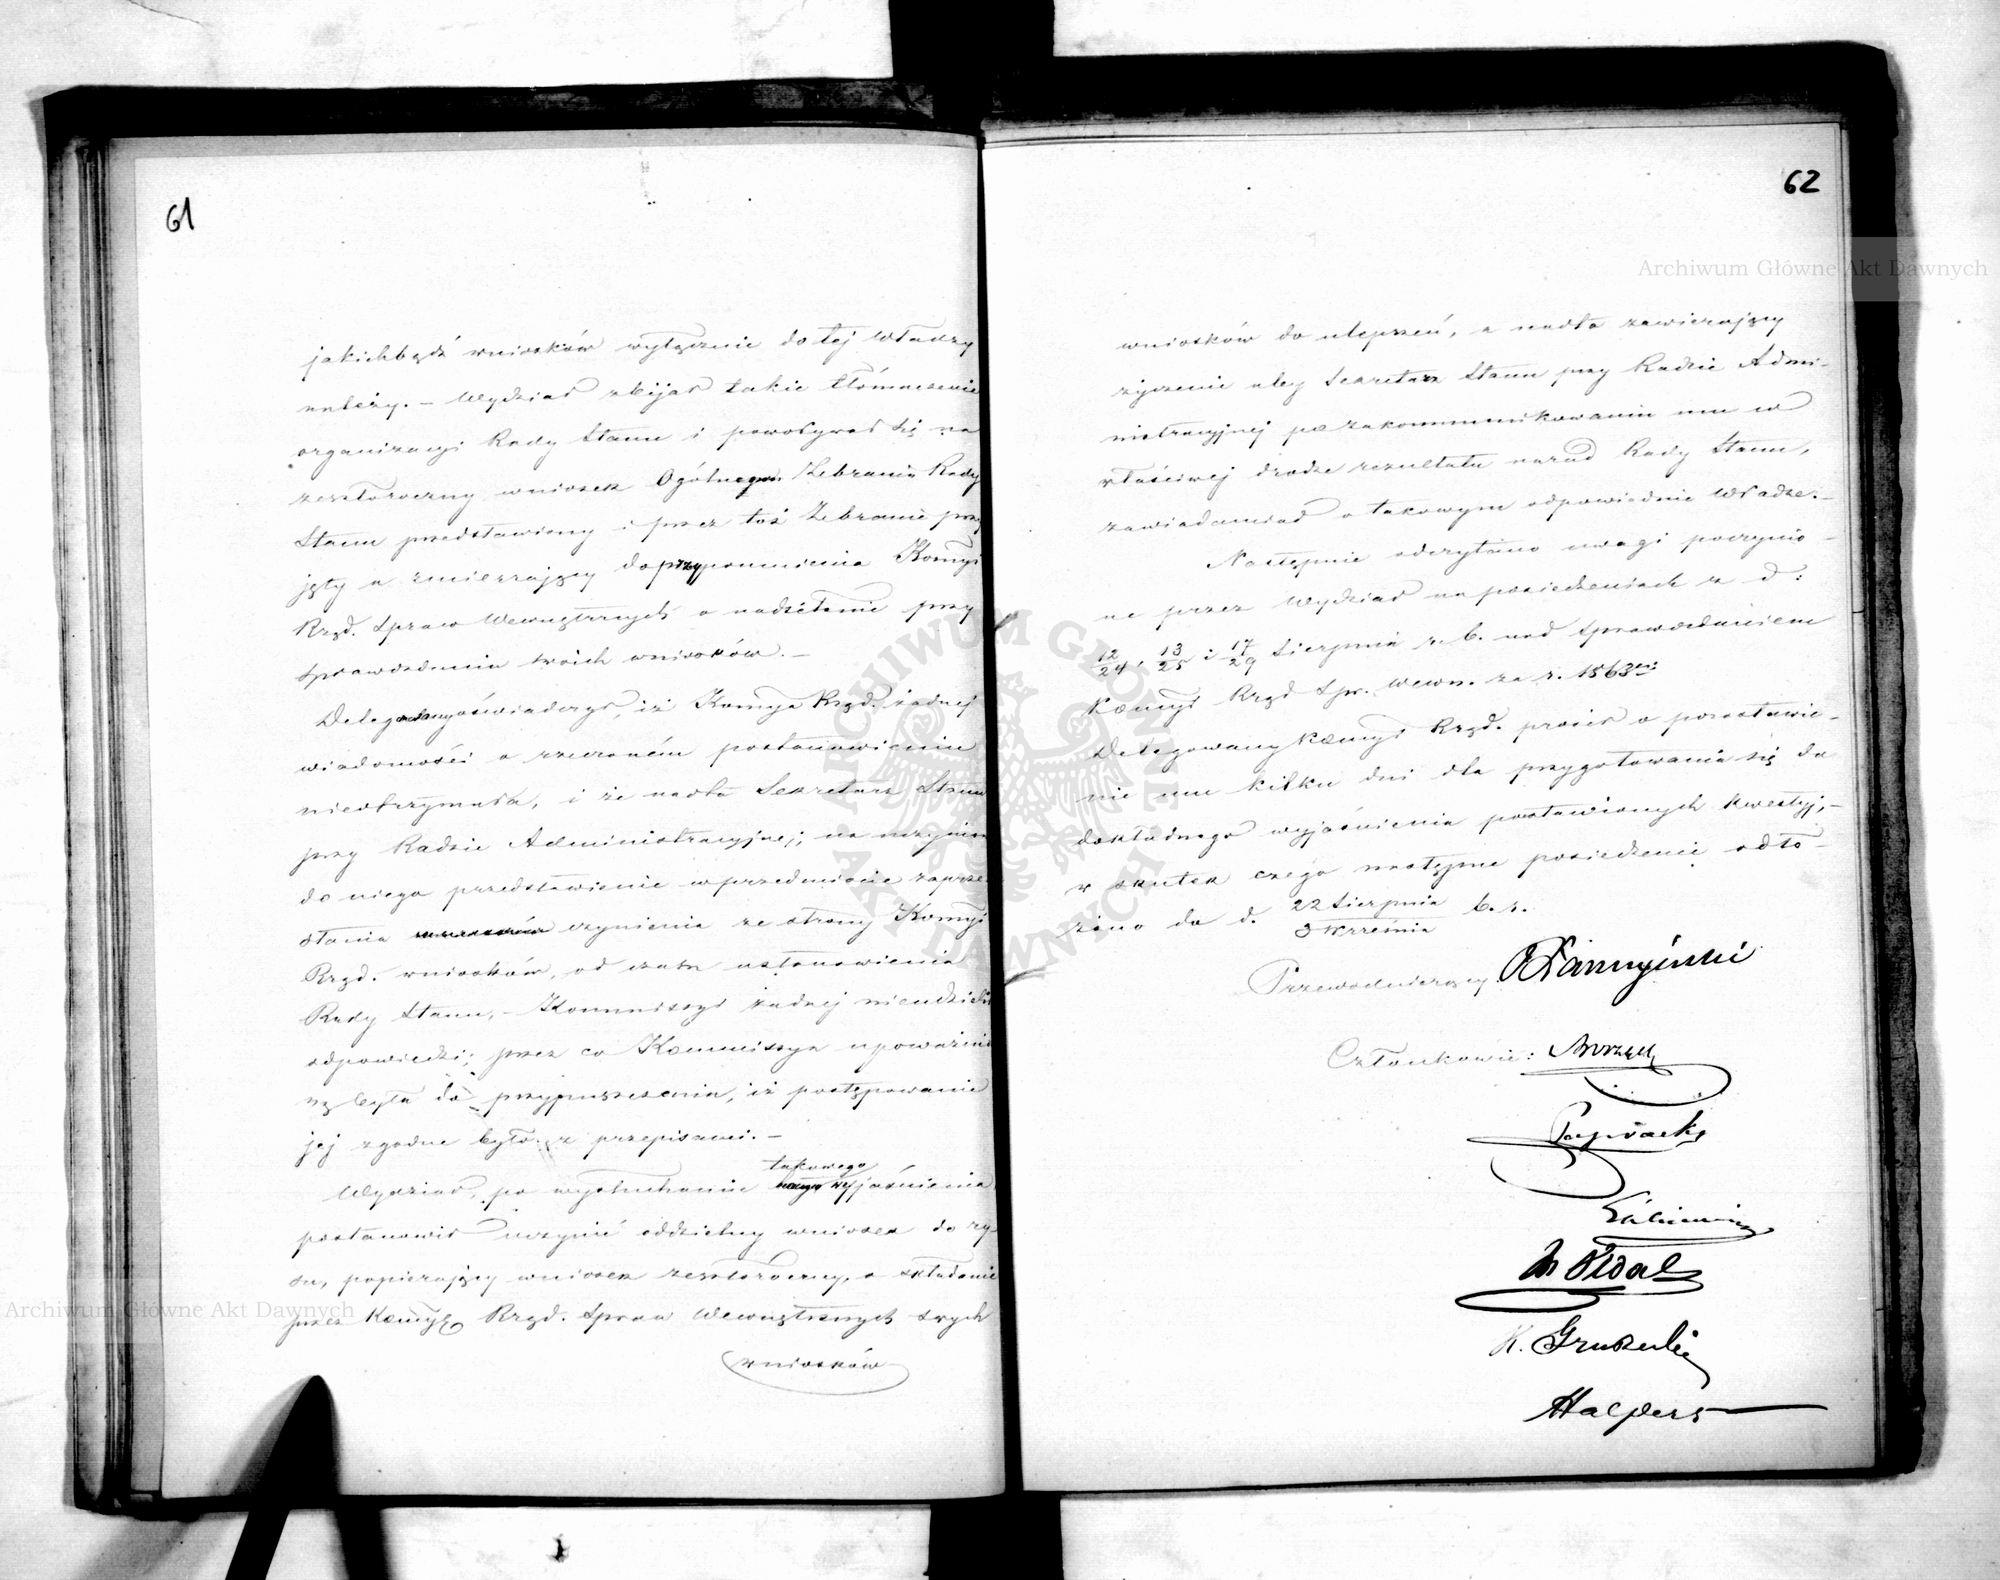 61
jakichbądź wniosków wyłącznie do tej Władzy
należy. – Wydział zbijał takie tłómaczenie
organizacyi Rady Stanu i powoływał się na
zeszłoroczny wniosek Ogólnego Zebrania Rady
Stanu przedstawiony i przez toż Zebranie przy
jęty a zmierzający do przypomnienia Komyi
Rząd. Spraw Wewnętrznych o nadsełanie przy
sprawozdaniu swoich wniosków. –
Delegowany oświadczył, iż Komya Rząd. żadnej
wiadomości o rzeczoném postanowieniu
nieotrzymała, i że nadto Sekretarz Stanu
przy Radzie Administracyjnej, na uczynione
do niego przedstawienie w przedmiocie zaprze
stania czynienia ze strony Komyi
Rząd. wniosków, od czasu ustanowienia
Rady Stanu, – Kommissyi żadnej nieudzielił
odpowiedzi; przez co Kommissya upoważnio
ną była do przypuszczenia, iż postępowanie
jej zgodne było z przepisami. –
takowego
Wydział, po wysłuchaniu wyjaśnienia
postanowił uczynić oddzielny wniosek do ry
su, popierający wniosek zeszłoroczny, o składanie
przez Komyę Rząd. Spraw Wewnętrznych swych
wniosków
62
wniosków do ulepszeń, a nadto zawierający
życzenie aby Sekretarz Stanu przy Radzie Admi-
nistracyjnej po zakommunikowaniu mu w
właściwej drodze rezultatu narad Rady Stanu,
zawiadamiał o takowym odpowiednie Władze. –
Następnie odczytano uwagi poczynio-
ne przez Wydział na posiedzeniach z d:
12/24, 13/25 i 17/29 Sierpnia r. b. nad Sprawozdaniem
Komyi Rząd Spr. Wewn. za r. 1863
Delegowany Komyi Rząd. prosił o pozostawie-
nie mu kilku dni dla przygotowania się do
dokładnego wyjaśnienia postawionych kwestyj, –
w skutek czego następne posiedzenie odło-
żono do d. 22 Sierpnia / 3 Września b. r.
Przewodniczący
Członkowie:
K. Gruszecki
Halpert
Archiwum Główne Akt Dawnych
Archiwum Główne Akt Dawnych
ARCHIWUM GŁÓWNE AKT DAWNYCH